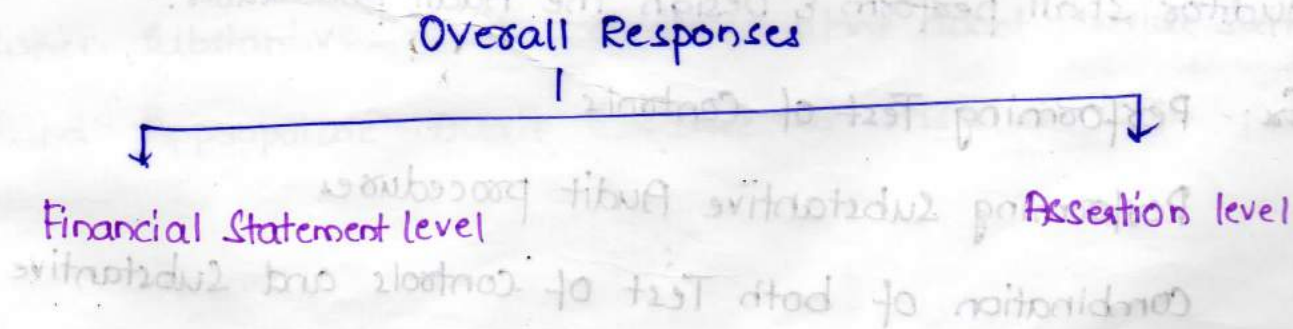 Overall Responses
Financial Statement level
Assertion level